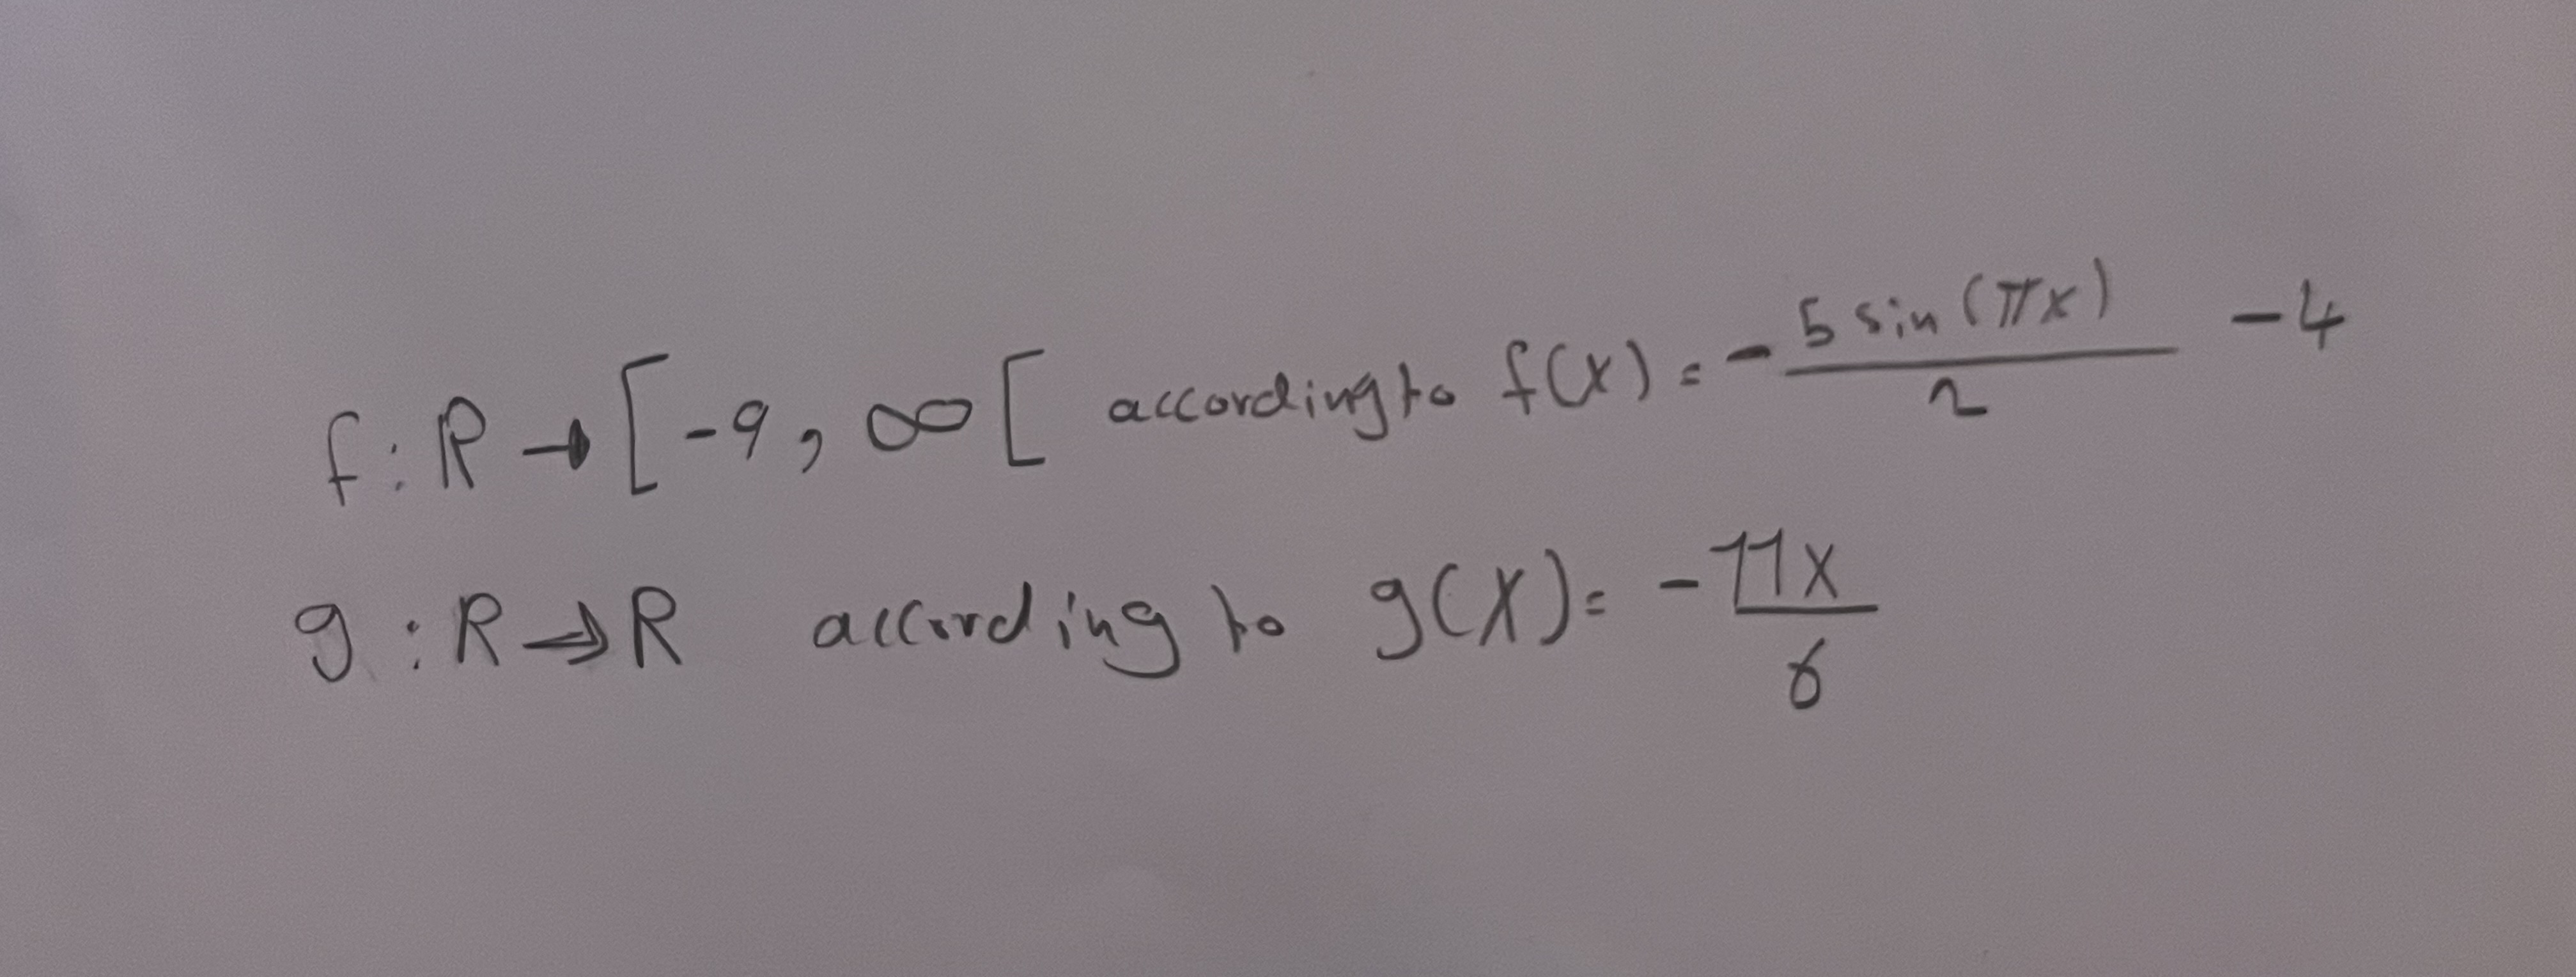 f : R → [-9, ∞[ according to f(x) = - 5 sin(πx) / 2 - 4
g : R → R according to g(x) = - 11x / 6